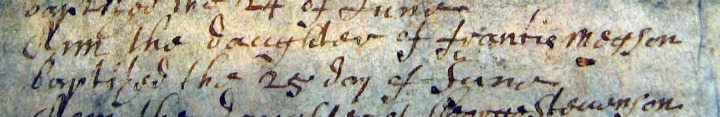 baptized the 24 of June
Ann the daughter of francis megson
baptized the 25 day of June
Ann the daughter of George Stevenson